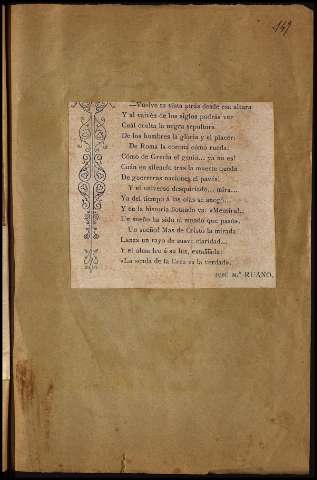 149
—Vuelve tu vista atrás desde esa altura
Y al vaivén de los siglos podrás ver
Cuál oculta la negra sepultura
De los hombres la gloria y el placer:
De Roma la corona cómo rueda:
Cómo de Grecia el genio... ya no es!
Cuán en silencio tras la muerte queda
De guerreras naciones el pavés.
Y el universo desquiciado... mira...
Ya del tiempo á las olas se anegó...
Y en la historia flotando va: «Mentira!..
Un sueño ha sido el mundo que pasó».
Un sueño! Mas de Cristo la mirada
Lanza un rayo de suave claridad...
Y el alma lee á su luz, extasiada:
«La senda de la Cruz es la verdad».
JOSÉ M.ª RUANO.